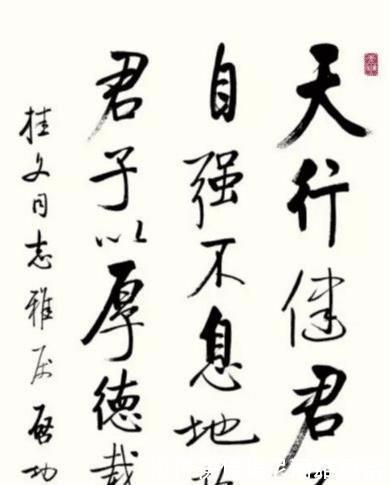 天行健君
自强不息地
君子以厚德載
桂文同志雅属 啓功